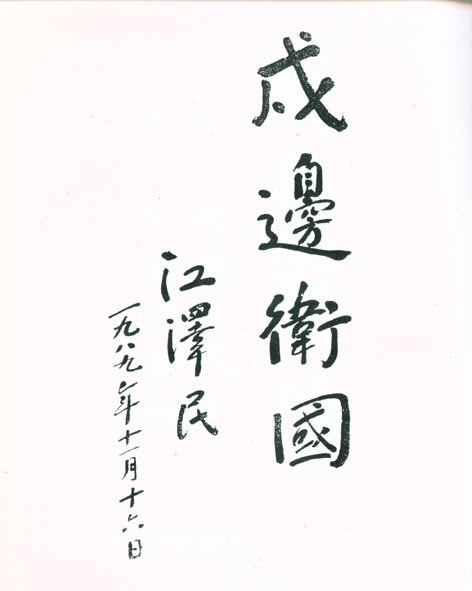 戍邊衛國
江澤民
一九八九年十一月十六日